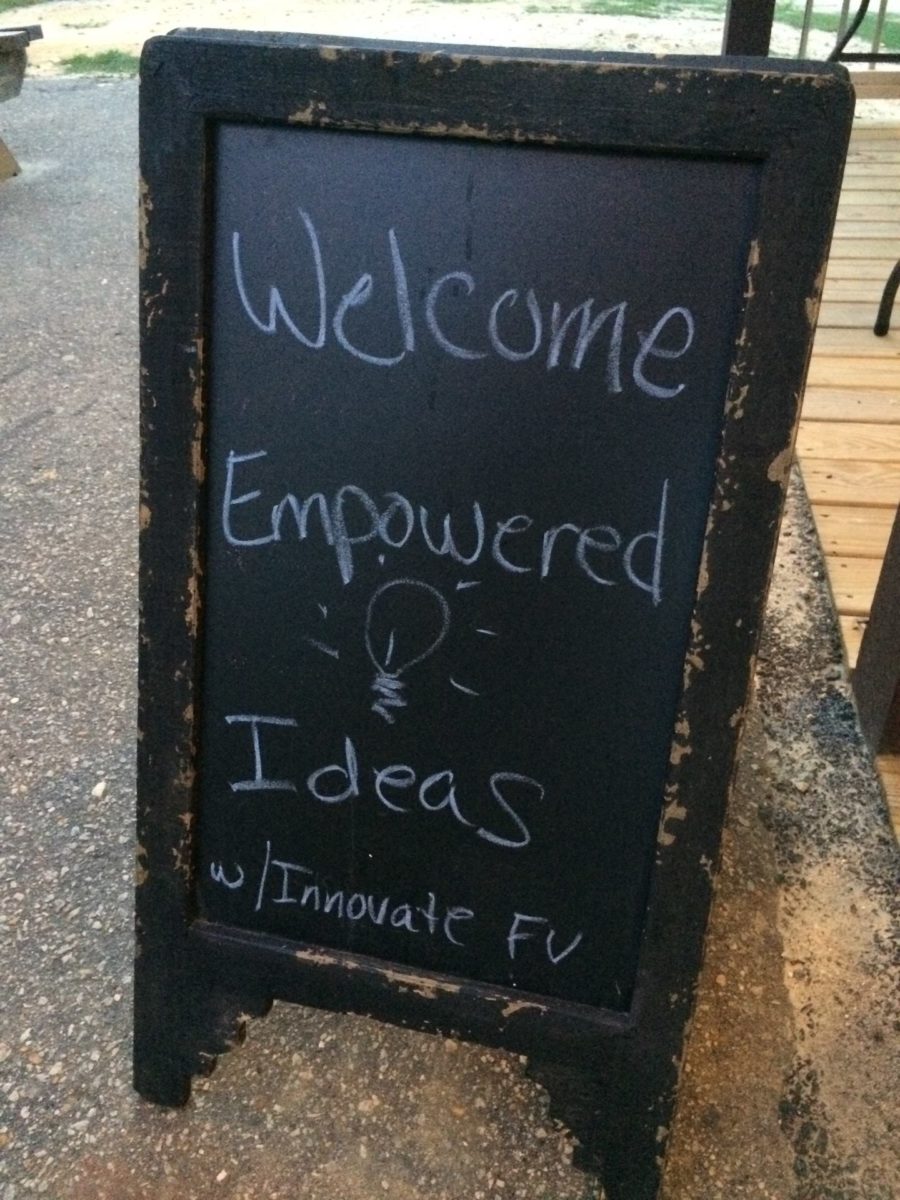 Welcome
Empowered
Ideas
w/Innovate FV